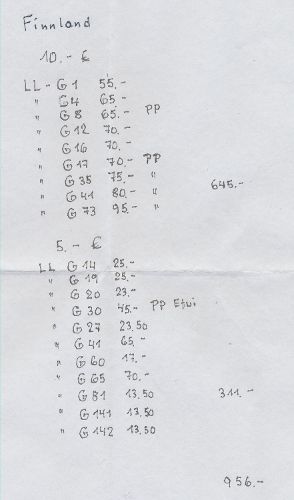 Finnland
10.- €
LL - G 1 55.-
" G 4 65.-
" G 8 65.- PP
" G 12 70.-
" G 16 70.-
" G 17 70.- PP
" G 35 75.- "
" G 41 80.- " 645.-
" G 73 95.- "
5.- €
LL G 14 25.-
" G 19 25.-
" G 20 23.-
" G 30 45.- PP Etui
" G 27 23.50
" G 41 65.-
" G 60 17.-
" G 65 70.-
" G 81 13.50 311.-
" G 141 13.50
" G 142 13.50
956.-